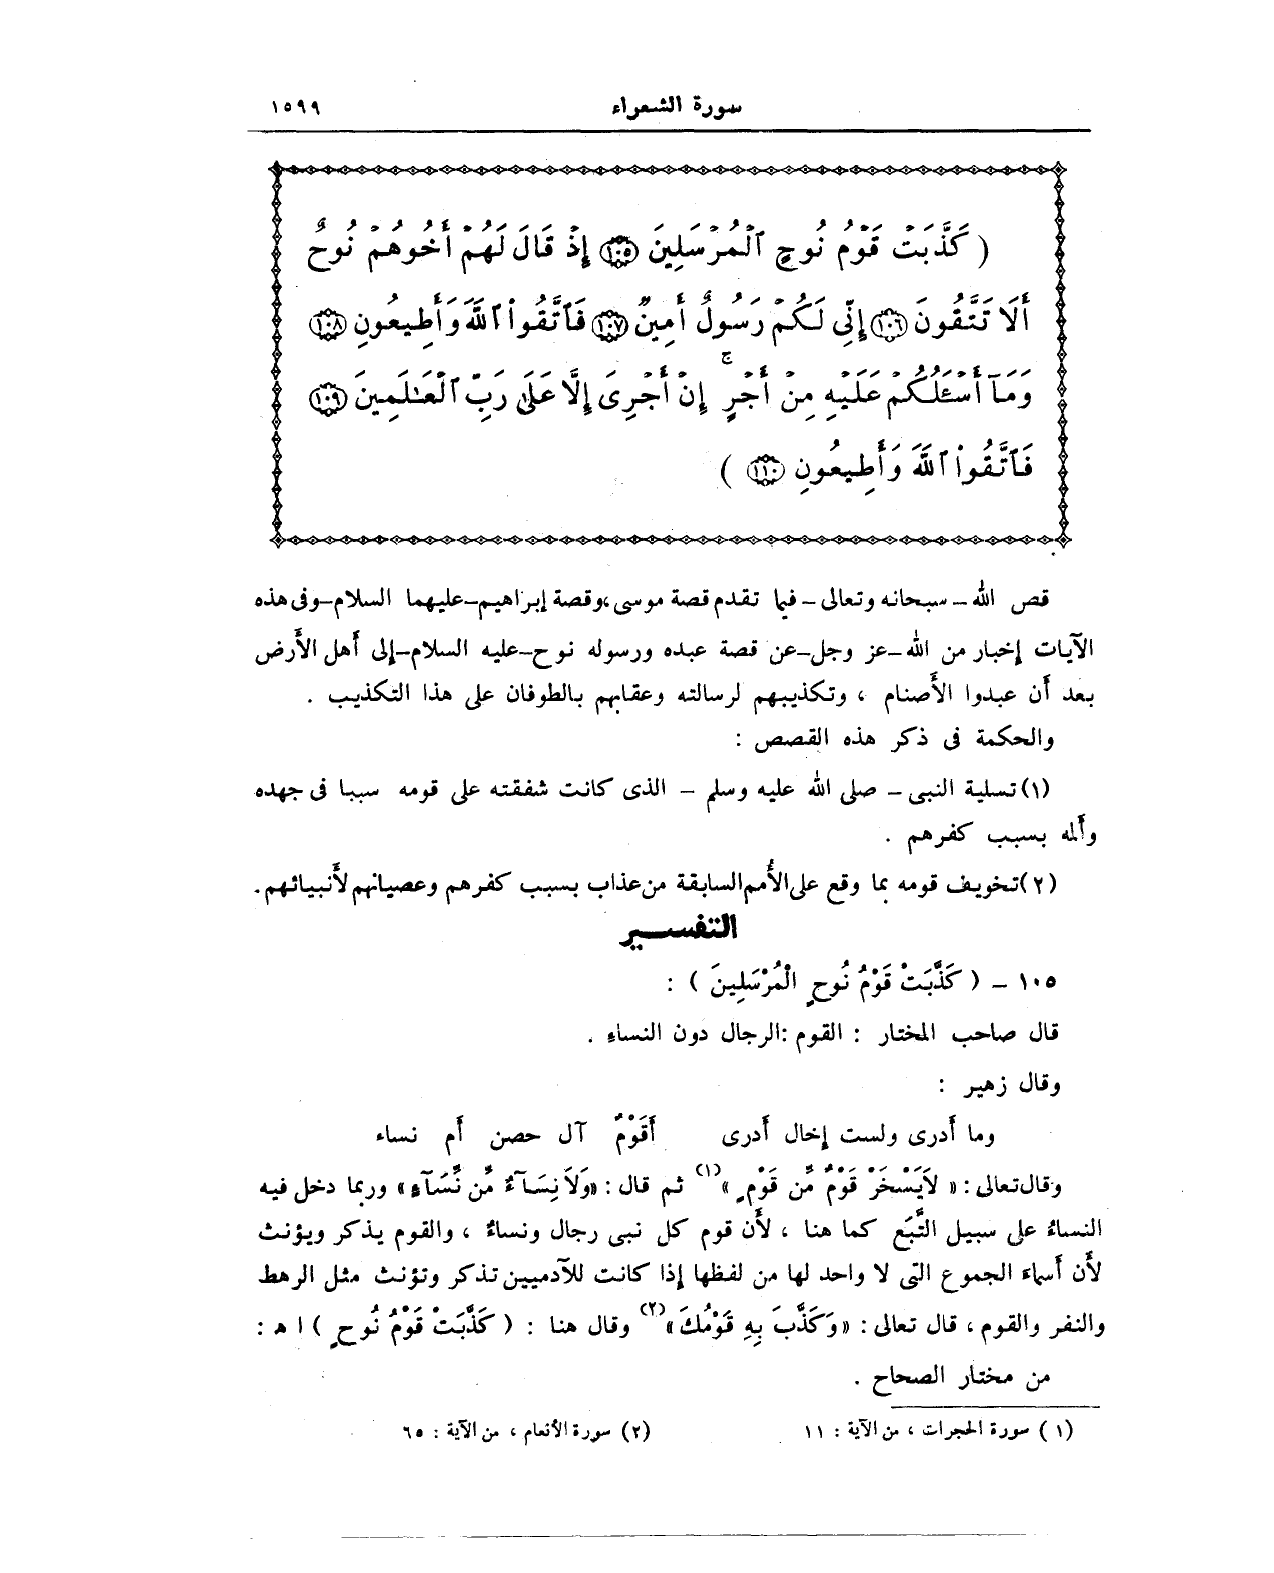 سورة الشعراء ١٥٩٩
( كَذَّبَتْ قَوْمُ نُوحٍ ٱلْمُرْسَلِينَ ١٠٥ إِذْ قَالَ لَهُمْ أَخُوهُمْ نُوحٌ
أَلَا تَتَّقُونَ ١٠٦ إِنِّى لَكُمْ رَسُولٌ أَمِينٌ ١٠٧ فَٱتَّقُوا۟ ٱللَّهَ وَأَطِيعُونِ ١٠٨
وَمَآ أَسْـَٔلُكُمْ عَلَيْهِ مِنْ أَجْرٍ ۖ إِنْ أَجْرِىَ إِلَّا عَلَىٰ رَبِّ ٱلْعَـٰلَمِينَ ١٠٩
فَٱتَّقُوا۟ ٱللَّهَ وَأَطِيعُونِ ١١٠ )
قص الله – سبحانه وتعالى – فيما تقدم قصة موسى ، وقصة إبراهيم – عليهما السلام – وفى هذه
الآيات إخبار من الله – عز وجل – عن قصة عبده ورسوله نوح – عليه السلام – إلى أهل الأرض
بعد أن عبدوا الأصنام ، وتكذيبهم لرسالته وعقابهم بالطوفان على هذا التكذيب .
والحكمة فى ذكر هذه القصص :
(١) تسلية النبى – صلى الله عليه وسلم – الذى كانت شفقته على قومه سببا فى جهده
وألمه بسبب كفرهم .
(٢) تخويف قومه بما وقع على الأُمم السابقة من عذاب بسبب كفرهم وعصيانهم لأنبيائهم .
التفسير
١٠٥ – ( كَذَّبَتْ قَوْمُ نُوحٍ الْمُرْسَلِينَ ) :
قال صاحب المختار : القوم : الرجال دون النساءِ .
وقال زهير :
وما أدرى ولست إخال أدرى أَقَوْمٌ آل حصن أم نساء
وقال تعالى : « لَايَسْخَرْ قَوْمٌ مِّن قَوْمٍ »(١) ثم قال : «وَلَا نِسَآءٌ مِّن نِّسَآءٍ» وربما دخل فيه
النساءُ على سبيل التَّبَع كما هنا ، لأن قوم كل نبى رجال ونساءٌ ، والقوم يذكر ويؤنث
لأن أسماء الجموع التى لا واحد لها من لفظها إذا كانت للآدميين تذكر وتؤنث مثل الرهط
والنفر والقوم ، قال تعالى : «وَكَذَّبَ بِهِ قَوْمُكَ»(٢) وقال هنا : ( كَذَّبَتْ قَوْمُ نُوحٍ ) ا ه :
من مختار الصحاح .
(١) سورة الحجرات ، من الآية : ١١ (٢) سورة الأنعام ، من الآية : ٦٥